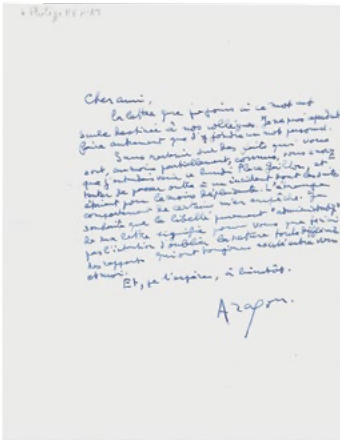 Cher ami,
la lettre que je joins à ce mot est
seule destinée à nos collègues. Je ne puis cependant
faire autrement que d'y joindre un mot personnel.
Sans revenir sur des faits qui vous
sont, au moins partiellement, connus, vous savez
que j'entendais venir ce lundi Place Gaillon, et
tenter de passer outre à un incident dont les suites
étaient pour le moins déplaisantes. L'étrange
comportement de certains m'en empêche. Je
souhaite que le libellé purement "administratif"
de ma lettre signifie pour vous que je n'ai
pas l'intention d'oublier la nature toute différente
des rapports qui ont toujours existé entre vous
et moi.
Et, je l'espère, à bientôt.
Aragon.